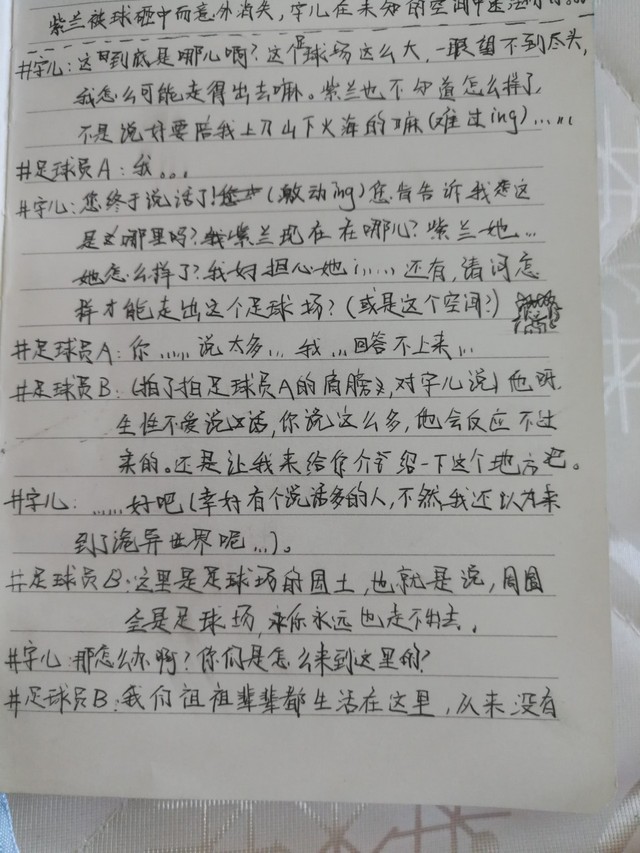 紫兰被球砸中而意外消失,宇儿在未知的空间中迷
#宇儿:这到底是哪儿啊?这个球场这么大,一眼望不到尽头,
我怎么可能走得出去嘛。紫兰也不知道怎么样了,
不是说好要陪我上刀山下火海的嘛(难过ing)……
#足球员A:我。。。
#宇儿:您终于说话了!(激动ing)您肯告诉我这
是哪里吗?紫兰现在在哪儿?紫兰她…
她怎么样了?我好担心她!……还有,请问怎
样才能走出这个足球场?(或是这个空间?)
#足球员A:你……说太多…我…回答不上来…
#足球员B:(拍了拍足球员A的肩膀,对宇儿说)他呀,
生性不爱说话,你说这么多,他会反应不过
来的。还是让我来给你介绍一下这个地方吧。
#宇儿:……好吧(幸好有个说话多的人,不然我还以为来
到了诡异世界呢…)。
#足球员B:这里是足球场的国土,也就是说,周围
全是足球场,你永远也走不出去。
#宇儿:那怎么办啊?你们是怎么来到这里的?
#足球员B:我们祖祖辈辈都生活在这里,从来没有